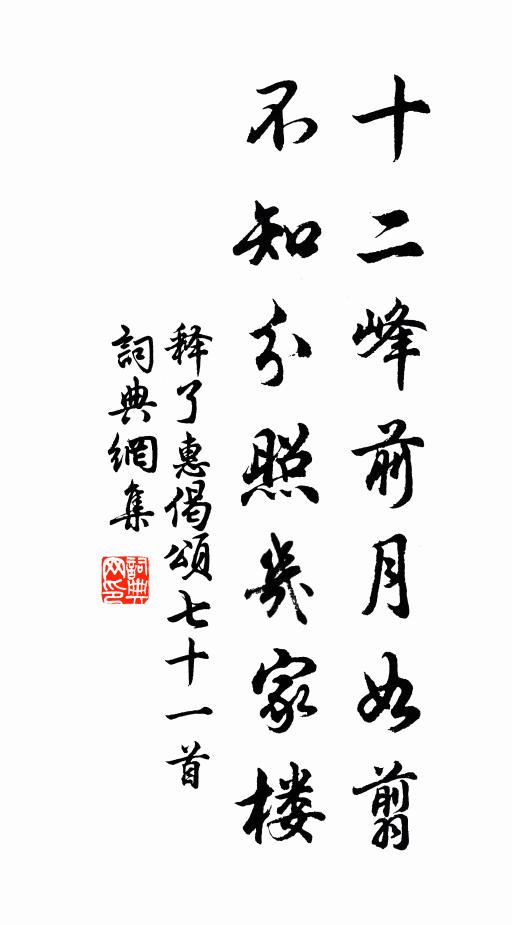 十二峰前月如翦
不知分照幾家楼
释了惠偈頌七十一首
詞典網集
詞典網印